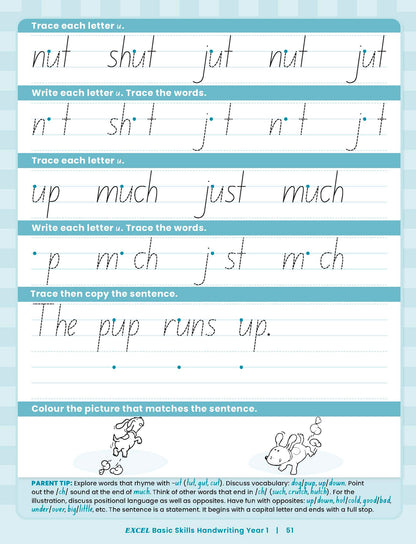 Trace each letter u.
nut shut jut nut jut
Write each letter u. Trace the words.
n t sh t j t n t j t
Trace each letter u.
up much just much
Write each letter u. Trace the words.
p m ch j st m ch
Trace then copy the sentence.
The pup runs up.
Colour the picture that matches the sentence.
PARENT TIP: Explore words that rhyme with -ut (hut, gut, cut). Discuss vocabulary: dog/pup, up/down. Point
out the /ch/ sound at the end of much. Think of other words that end in /ch/ (such, crutch, hutch). For the
illustration, discuss positional language as well as opposites. Have fun with opposites: up/down, hot/cold, good/bad,
under/over, big/little, etc. The sentence is a statement. It begins with a capital letter and ends with a full stop.
EXCEL Basic Skills Handwriting Year 1 | 51